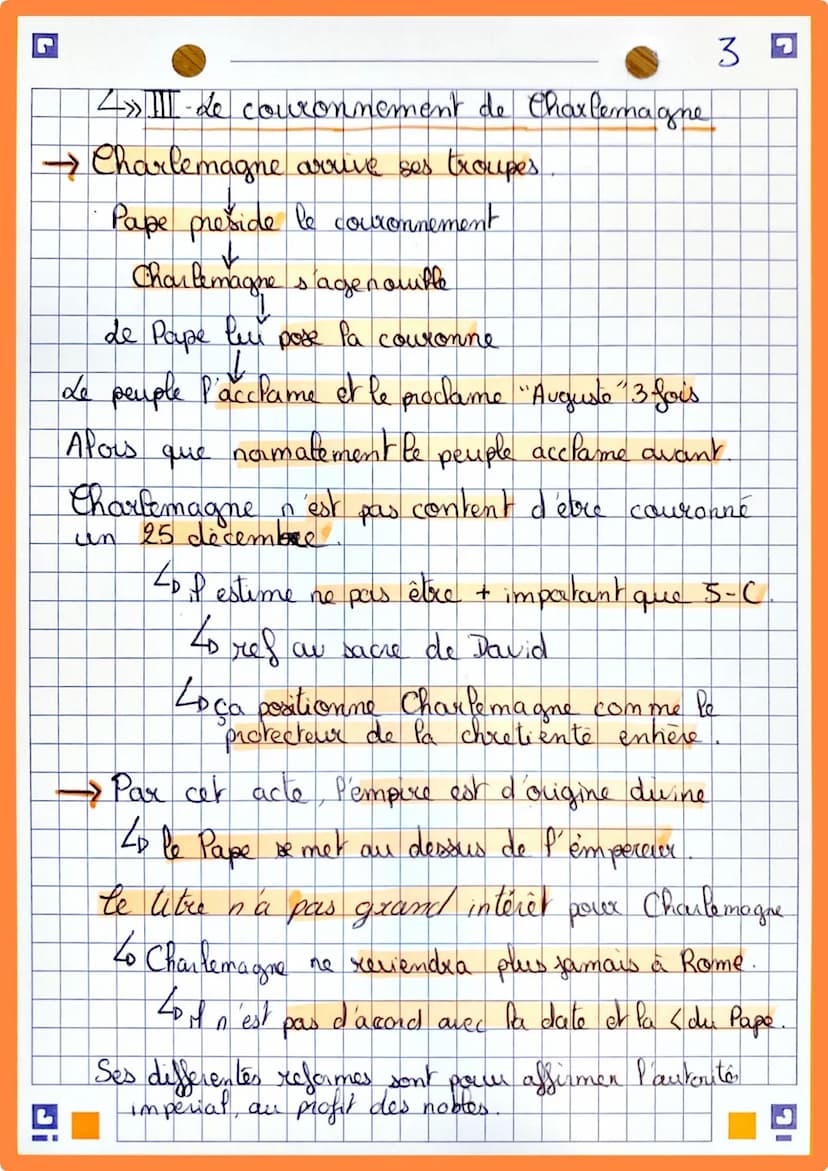 3
↳» III - Le couronnement de Charlemagne
→ Charlemagne arrive ses troupes.
↓
Pape préside le couronnement
↓
Charlemagne s'agenouille
↓
Le Pape lui pose la couronne
↓
Le peuple l'acclame et le proclame "Auguste" 3 fois
Alors que normalement le peuple acclame avant.
Charlemagne n'est pas content d'être couronné
un 25 décembre.
↳ il estime ne pas être + important que J-C.
↳ ref au sacre de David
↳ ça positionne Charlemagne comme le
protecteur de la chretienté entière.
→ Par cet acte, l'empire est d'origine divine
↳ le Pape se met au dessus de l'émpereur.
Le titre n'a pas grand intérêt pour Charlemagne
↳ Charlemagne ne reviendra plus jamais à Rome.
↳ il n'est pas d'accord avec la date et la < du Pape.
Ses differentes reformes sont pour affirmer l'autorité
impérial, au profit des nobles.